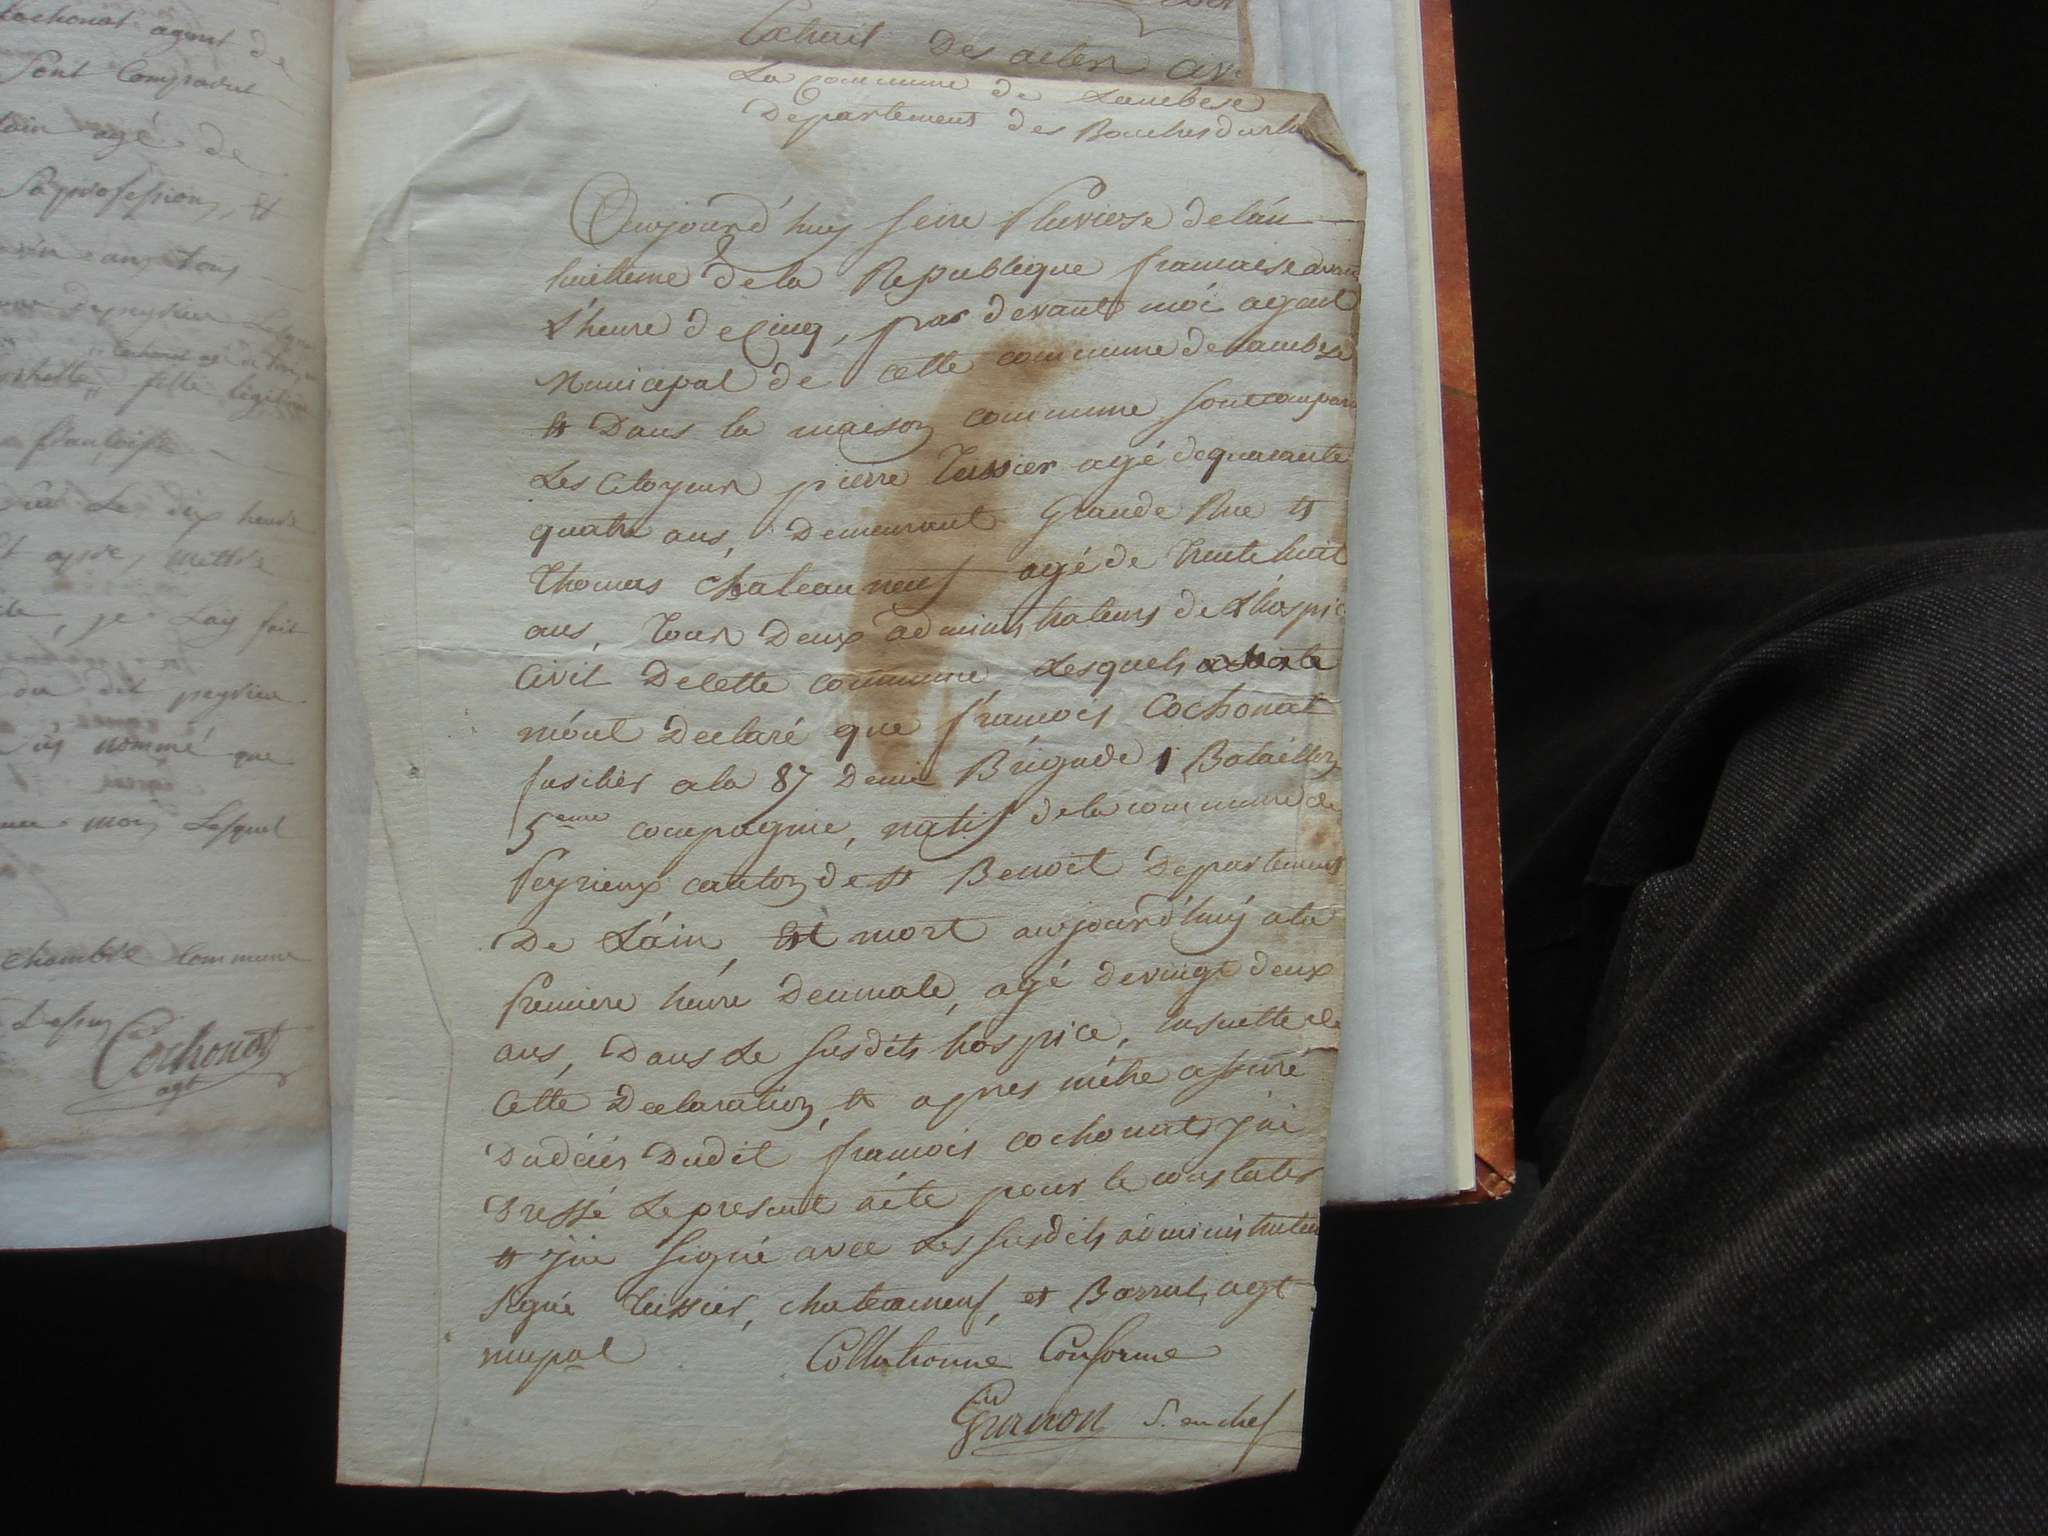 Cochonat agent de
Sont Comparut
ain agé de
Sa profession, et
ans tous
fille légitime
françoise
Le dix heure
et apres, mettre
je Lay fait
du dit peyrieu
nommé que
moy Lesquel
chambre Commune
Dessus
Cochonat
agt
Extrait Des actes
La commune de Lambese
Departement des Bouches durh
Aujourd'huy seise Pluviose de lán
huitieme de la Republique francaise avan
L'heure de Cinq, par devant moi agent
Municipal de cette commune de Lambese
et Dans la maison commune sont compar
Les Citoyens pierre Tessier agé de quarante
quatre ans, Demeurant Grande Rue et
Thomas chateauneuf agé de Trente huit
ans, Tous Deux administrateurs de L'hospic
Civil De Cette commune, Lesquels
mónt Declaré que francois Cochonat
fusilier a la 87 Demi Brigade 1 Bataillon
5eme compagnie, natif de la commune de
Peyrieux canton de st Benoit Departement
De L'ain, Est mort aujourd'huy a la
premiere heure Du mate, agé de vingt deux
ans, Dans Le susdits hospice, Ensuitte de
Cette Declaration, et apres métre assuré
Du décés Dudit francois Cochonat, j'ai
Dressé Le present acte pour le constater
et j'ai signé avec Les susdits administrateu
Signé Tessier, chateauneuf, et Barrat agt
mupal Collationné Conforme
S. en chef